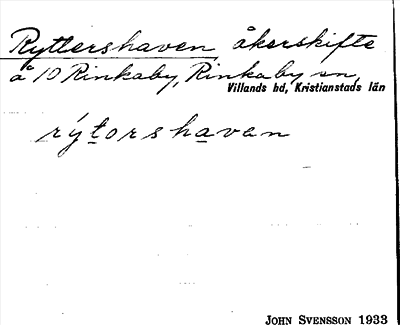 Ryttershaven åkerskifte
å 10 Rinkaby, Rinkaby sn,
Villands hd, Kristianstads län
rýtorshavan
JOHN SVENSSON 1933